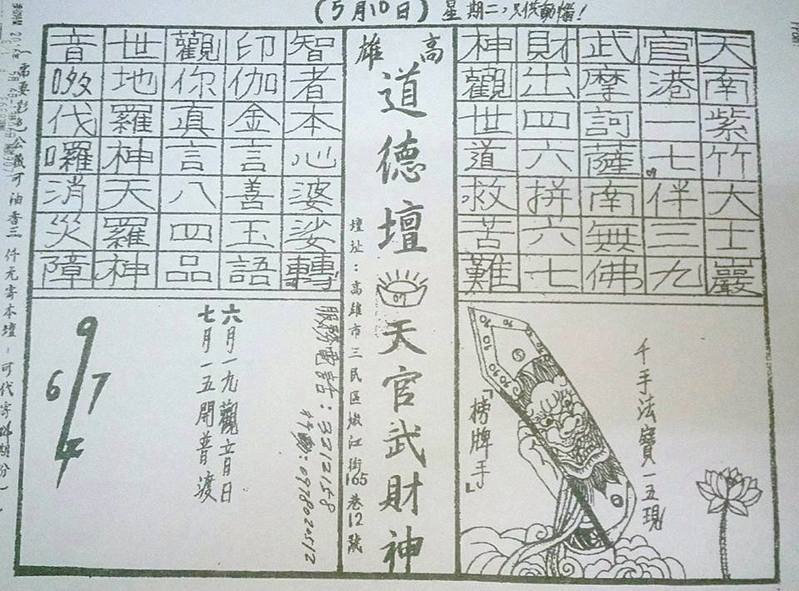 (5月10日)星期二,只供參㩦!
天南紫竹大士巖
官港一七伴三九
武摩訶薩南無佛
財出四六拼六七
神觀世道救苦難
千手法寶一五現
「榜牌手」
高雄
道德壇
天官武財神
壇址:高雄市三民區嫩江街165巷12號
智者本心婆娑轉
印伽金言善玉語
觀你真言八四品
世地羅神天羅神
音呶伐囉消災障
服務電話:3212158
六月一九觀音日
七月一五開普渡
9
6 7
4